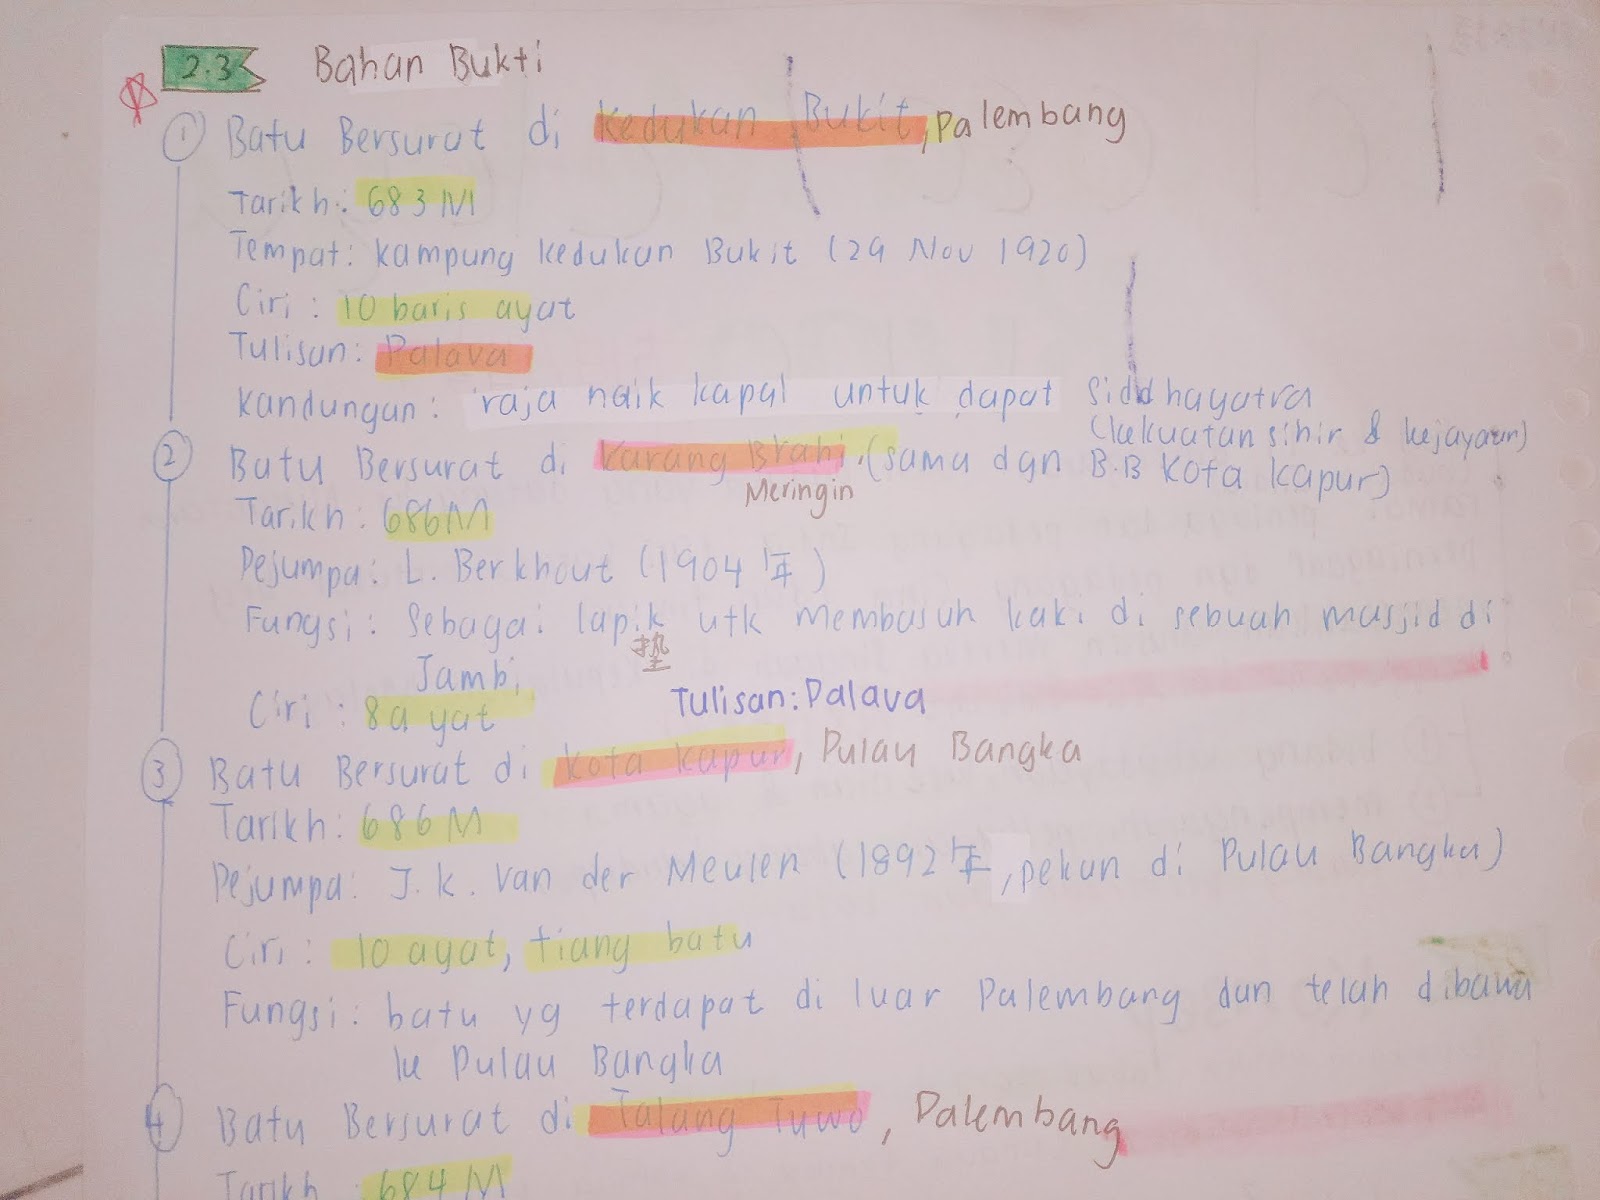 2.3 Bahan Bukti
① Batu Bersurat di Kedukan Bukit, Palembang
Tarikh: 683 M
Tempat: Kampung Kedukan Bukit (29 Nov 1920)
Ciri : 10 baris ayat
Tulisan: Palava
Kandungan : raja naik kapal untuk dapat Siddhayatra
(kekuatan sihir & kejayaan)
② Batu Bersurat di Karang Brahi, (sama dgn B.B Kota Kapur)
Meringin
Tarikh : 686M
Pejumpa: L. Berkhout (1904年)
Fungsi : Sebagai lapik utk membasuh kaki di sebuah masjid di
垫
Jambi
Ciri : 8 ayat
Tulisan: Palava
③ Batu Bersurat di Kota Kapur, Pulau Bangka
Tarikh: 686 M
Pejumpa: J.K. Van der Meulen (1892年, pekan di Pulau Bangka)
Ciri : 10 ayat, tiang batu
Fungsi : batu yg terdapat di luar Palembang dan telah dibawa
ke Pulau Bangka
④ Batu Bersurat di Talang Tuwo, Palembang
Tarikh : 684 M